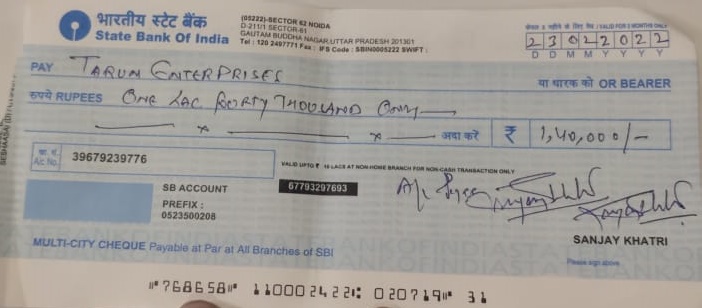 भारतीय स्टेट बैंक
State Bank Of India
(05222)-SECTOR 62 NOIDA
D-211/1 SECTOR-61
GAUTAM BUDDHA NAGAR,UTTAR PRADESH 201301
Tel : 120 2497771 Fax : IFS Code : SBIN0005222 SWIFT :
VALID FOR 3 MONTHS ONLY
23022022
D D M M Y Y Y Y
PAY TARUN ENTERPRISES
या धारक को OR BEARER
रुपये RUPEES ONE LAC FORTY THOUSAND ONLY
अदा करें ₹ 1,40,000/-
खा. सं.
A/c No. 39679239776
VALID UPTO ₹ 10 LACS AT NON-HOME BRANCH FOR NON-CASH TRANSACTION ONLY
SB ACCOUNT 67793297693
PREFIX :
0523500208
SANJAY KHATRI
Please sign above
MULTI-CITY CHEQUE Payable at Par at All Branches of SBI
⑈768658⑈ 110002422⑆ 020719⑈ 31